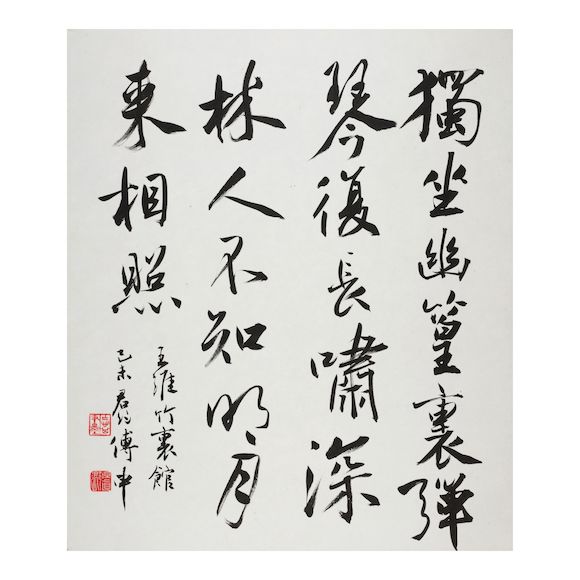 獨坐幽篁裏彈
琴復長嘯深
林人不知明月
來相照
王維竹裏館
己未君約傅申